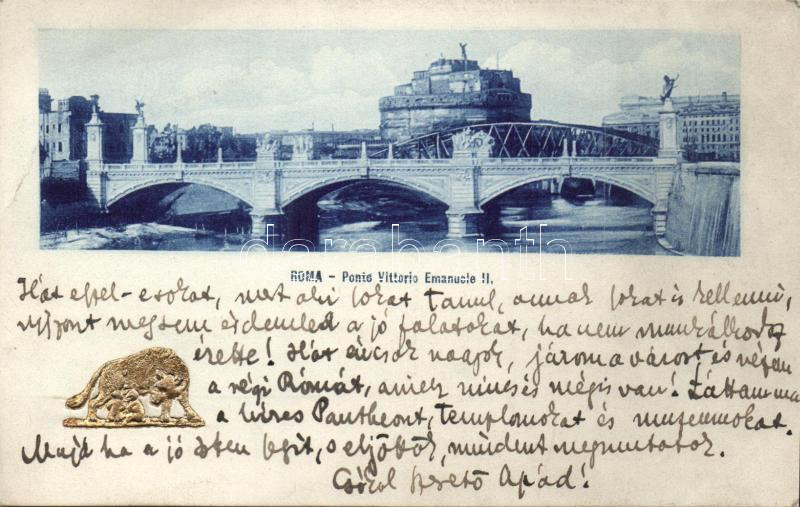 ROMA – Ponte Vittorio Emanuele II.
darabanth
Hát eszel-eszkat, mert aki sokat tanul, annak sokat is kell enni,
viszont meg sem érdemled a jó falatokat, ha nem munkálkodsz
érette! Hát én csak vagyok, járom a várost és nézem
a régi Rómát, amely nincs és mégis van! Láttam ma
a híres Pantheont, templomokat és muzeumokat.
Majd ha a jó Isten segít, s eljöttök, mindent megmutatok.
Csókol szerető Apád!